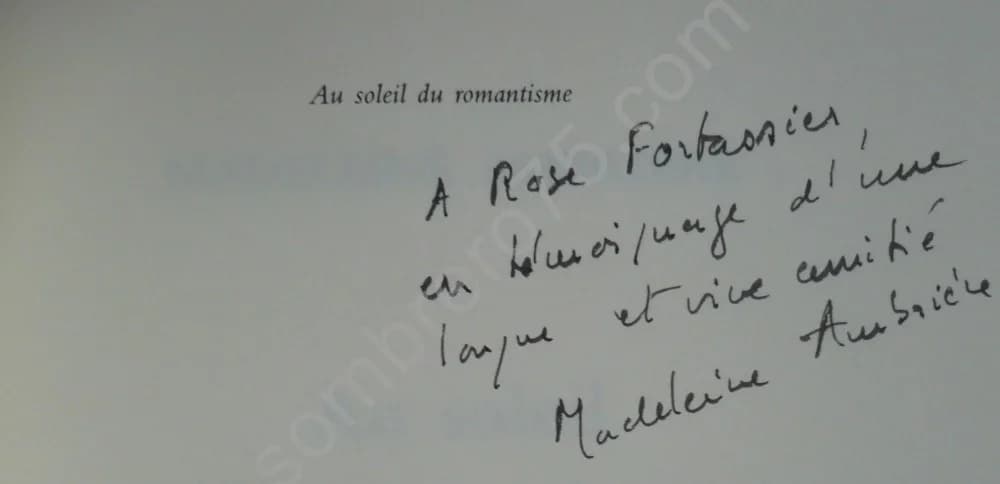 Au soleil du romantisme
A Rose Fortassier,
en témoignage d'une
longue et vive amitié
Madeleine Ambrière
sombrero75.com